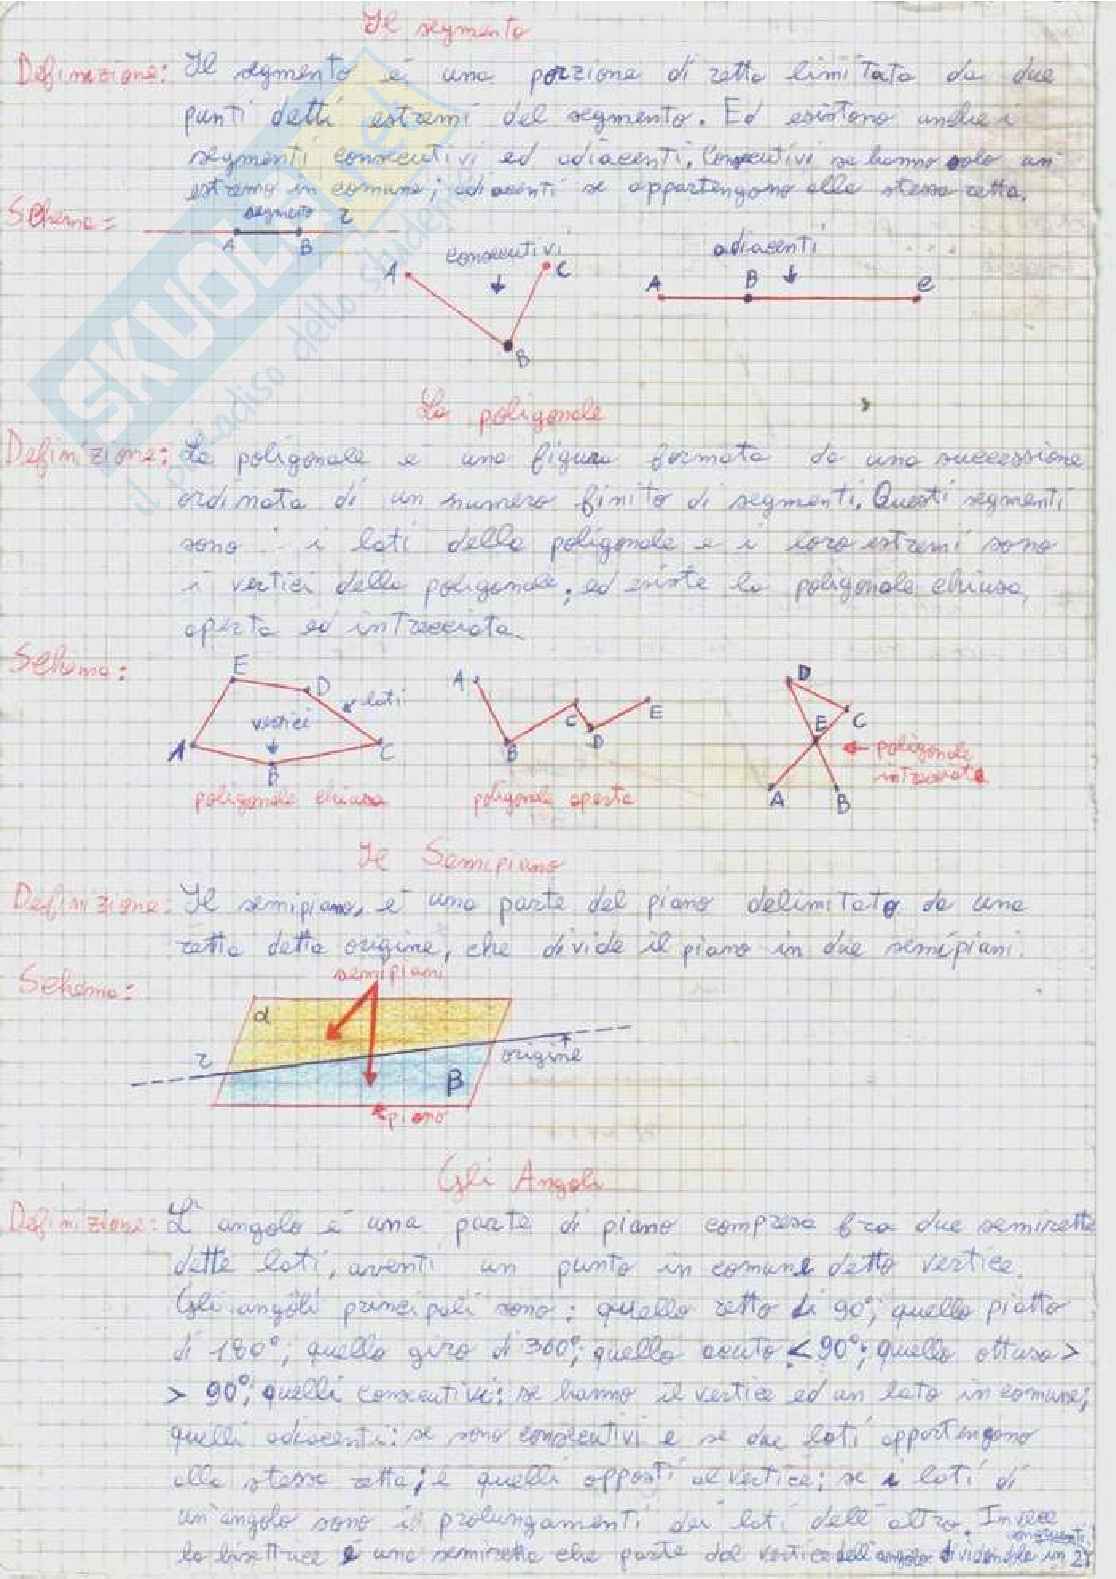 Il segmento
Definizione: Il segmento è una porzione di retta limitata da due
punti detti estremi del segmento. Ed esistono anche i
segmenti consecutivi ed adiacenti. Consecutivi se hanno solo un
estremo in comune; adiacenti se appartengono alla stessa retta.
Schema: segmento r
A B
consecutivi
A C
B
adiacenti
A B C
SKUOLA.net
il paradiso dello studente
La poligonale
Definizione: La poligonale è una figura formata da una successione
ordinata di un numero finito di segmenti. Questi segmenti
sono i lati della poligonale e i loro estremi sono
i vertici della poligonale; ed esiste la poligonale chiusa,
aperta ed intrecciata.
Schema:
E D lati
vertici
A B C
poligonale chiusa
A B C D E
poligonale aperta
D C E
A B
poligonale
intrecciata
Il Semipiano
Definizione: Il semipiano, è una parte del piano delimitato da una
retta detta origine, che divide il piano in due semipiani.
Schema: semipiani
α
r origine
β
piano
Gli Angoli
Definizione: L'angolo è una parte di piano compresa fra due semirette
dette lati, aventi un punto in comune detto vertice.
Gli angoli principali sono: quello retto di 90°; quello piatto
di 180°; quello giro di 360°; quello acuto < 90°; quello ottuso >
> 90°; quelli consecutivi: se hanno il vertice ed un lato in comune;
quelli adiacenti: se sono consecutivi e se due lati appartengono
alla stessa retta; e quelli opposti al vertice; se i lati di
un'angolo sono i prolungamenti dei lati dell'altro. Invece
la bisettrice è una semiretta che parte dal vertice dell'angolo dividendolo in 2
congruenti